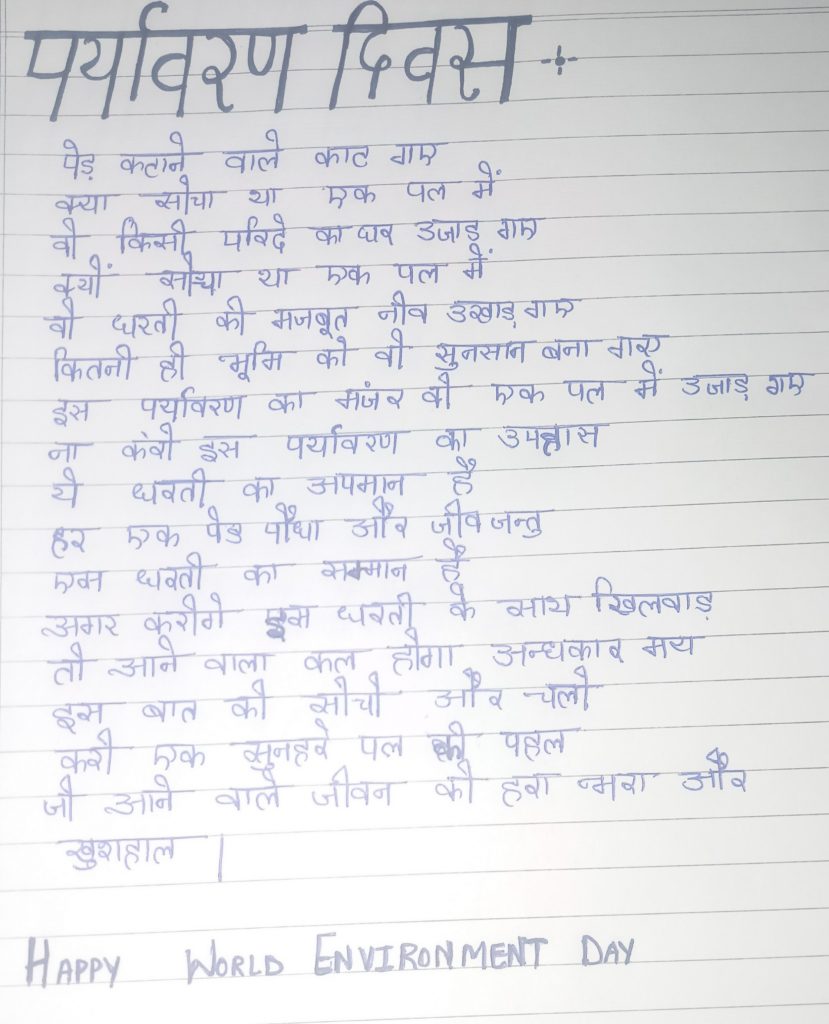 पर्यावरण दिवस
पेड़ कटाने वाले काट गए
क्या सोचा था एक पल में
वो किसी परिंदे का घर उजाड़ गए
क्यों सोचा था एक पल में
वो धरती की मजबूत नीव उखाड़ गए
कितनी ही भूमि को वो सुनसान बना गए
इस पर्यावरण का मंजर वो एक पल में उजाड़ गए
ना करो इस पर्यावरण का उपहास
ये धरती का अपमान है
हर एक पेड पौधा और जीव जन्तु
एस धरती का सम्मान है
अगर करोगे इस धरती के साथ खिलवाड़
तो आने वाला कल होगा अन्धकार मय
इस बात को सोचो और चलो
करो एक सुनहरे पल की पहल
जो आने वाले जीवन को हरा भरा और
खुशहाल |
HAPPY WORLD ENVIRONMENT DAY